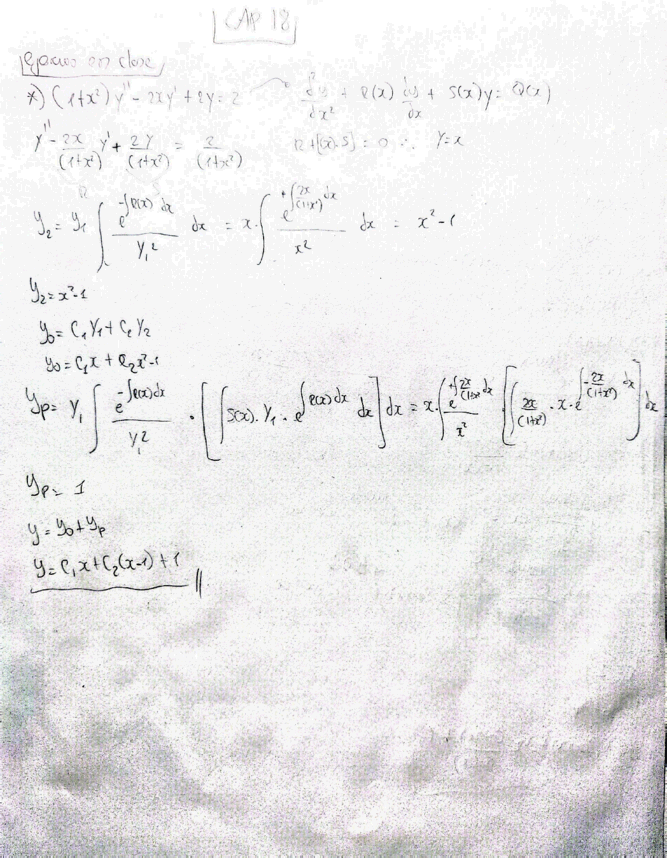 CAP 18
Ejercicios en clase
*) (1+x²) y'' - 2xy' + 2y = 2 → d²y/dx² + R(x) dy/dx + S(x)y = Q(x)
y'' - 2x/(1+x²) y' + 2y/(1+x²) = 2/(1+x²) R+[S(x).S] = 0 ∴ y=x
y₂ = y₁ ∫ e^(-∫R(x) dx)/y₁² dx = x·∫ e^(+∫2x/(1+x²) dx)/x² dx = x²-1
y₂ = x²-1
y₀ = C₁y₁ + C₂y₂
y₀ = C₁x + C₂x²-1
yp = y₁ ∫ e^(-∫R(x)dx)/y₁² · [∫S(x). y₁ · e^(∫R(x) dx) dx] dx = x·∫ e^(+∫2x/(1+x²) dx)/x² · [∫ 2x/(1+x²) · x · e^(∫-2x/(1+x²) dx)] dx
yp = 1
y = y₀+yp
y = C₁x + C₂(x-1) + 1 //